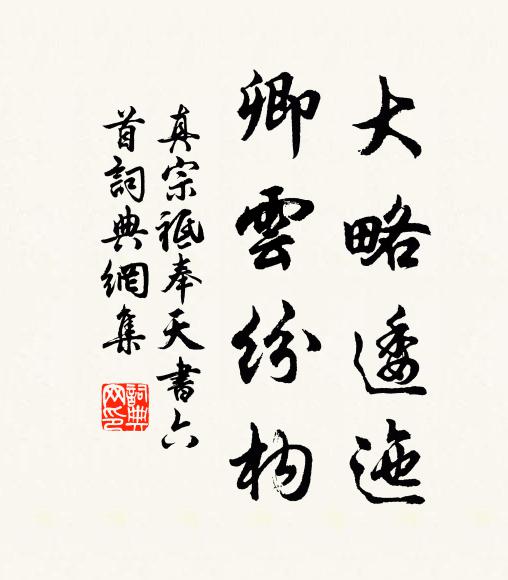 大略逶迤
卿雲紛构
真宗祗奉天書六
首詞典網集
詞典網印